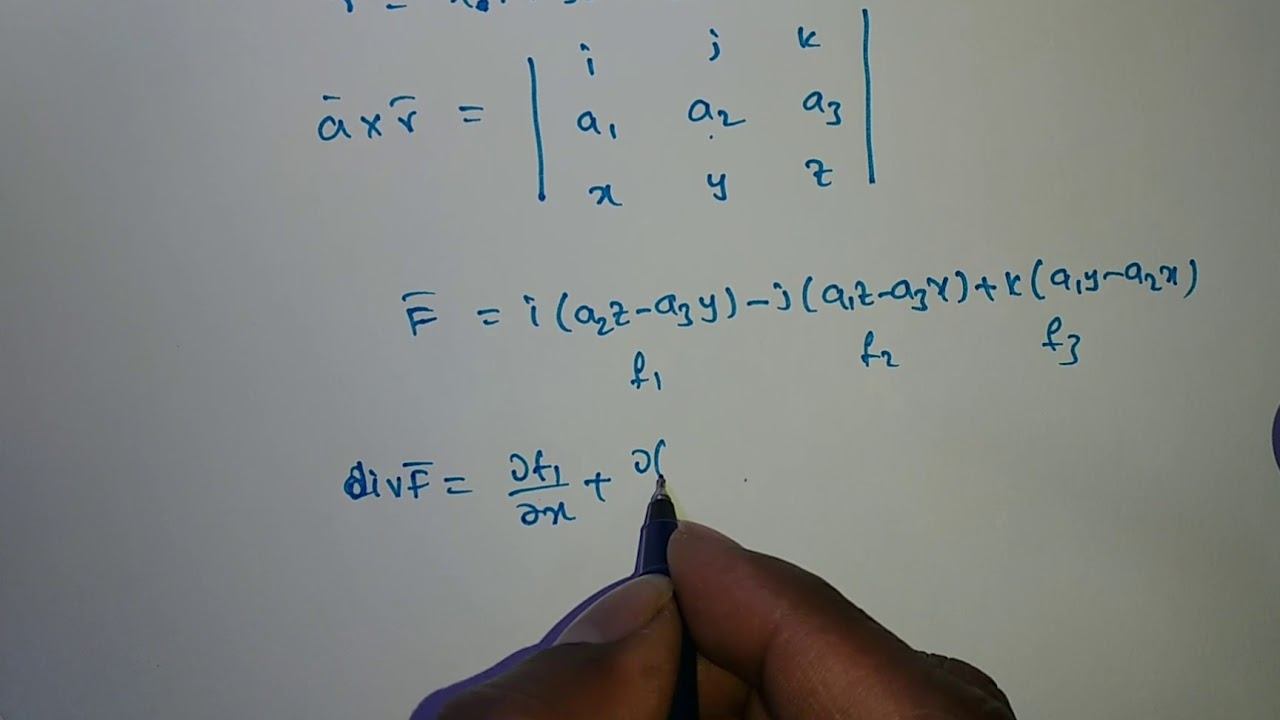 i j k
ā × r̄ = | a₁ a₂ a₃ |
x y z
F̄ = i(a₂z-a₃y)-j(a₁z-a₃x)+k(a₁y-a₂x)
f₁ f₂ f₃
div F̄ = ∂f₁/∂x + ∂